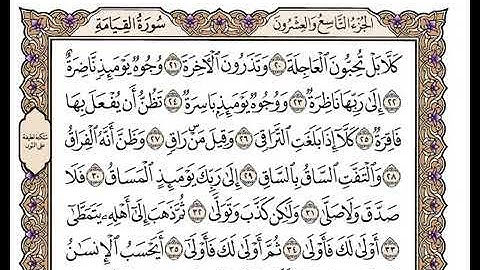 سُورَةُ القِيَامَةِ
الجُزْءُ التَّاسِعُ وَالعِشْرُونَ
كَلَّا بَلْ تُحِبُّونَ ٱلْعَاجِلَةَ ٢٠ وَتَذَرُونَ ٱلْآخِرَةَ ٢١ وُجُوهٌ يَوْمَئِذٍ نَّاضِرَةٌ
٢٢ إِلَىٰ رَبِّهَا نَاظِرَةٌ ٢٣ وَوُجُوهٌ يَوْمَئِذٍۭ بَاسِرَةٌ ٢٤ تَظُنُّ أَن يُفْعَلَ بِهَا
فَاقِرَةٌ ٢٥ كَلَّآ إِذَا بَلَغَتِ ٱلتَّرَاقِيَ ٢٦ وَقِيلَ مَنْ رَاقٍ ٢٧ وَظَنَّ أَنَّهُ ٱلْفِرَاقُ
٢٨ وَٱلْتَفَّتِ ٱلسَّاقُ بِٱلسَّاقِ ٢٩ إِلَىٰ رَبِّكَ يَوْمَئِذٍ ٱلْمَسَاقُ ٣٠ فَلَا
صَدَّقَ وَلَا صَلَّىٰ ٣١ وَلَٰكِن كَذَّبَ وَتَوَلَّىٰ ٣٢ ثُمَّ ذَهَبَ إِلَىٰٓ أَهْلِهِۦ يَتَمَطَّىٰٓ
٣٣ أَوْلَىٰ لَكَ فَأَوْلَىٰ ٣٤ ثُمَّ أَوْلَىٰ لَكَ فَأَوْلَىٰٓ ٣٥ أَيَحْسَبُ ٱلْإِنسَٰنُ